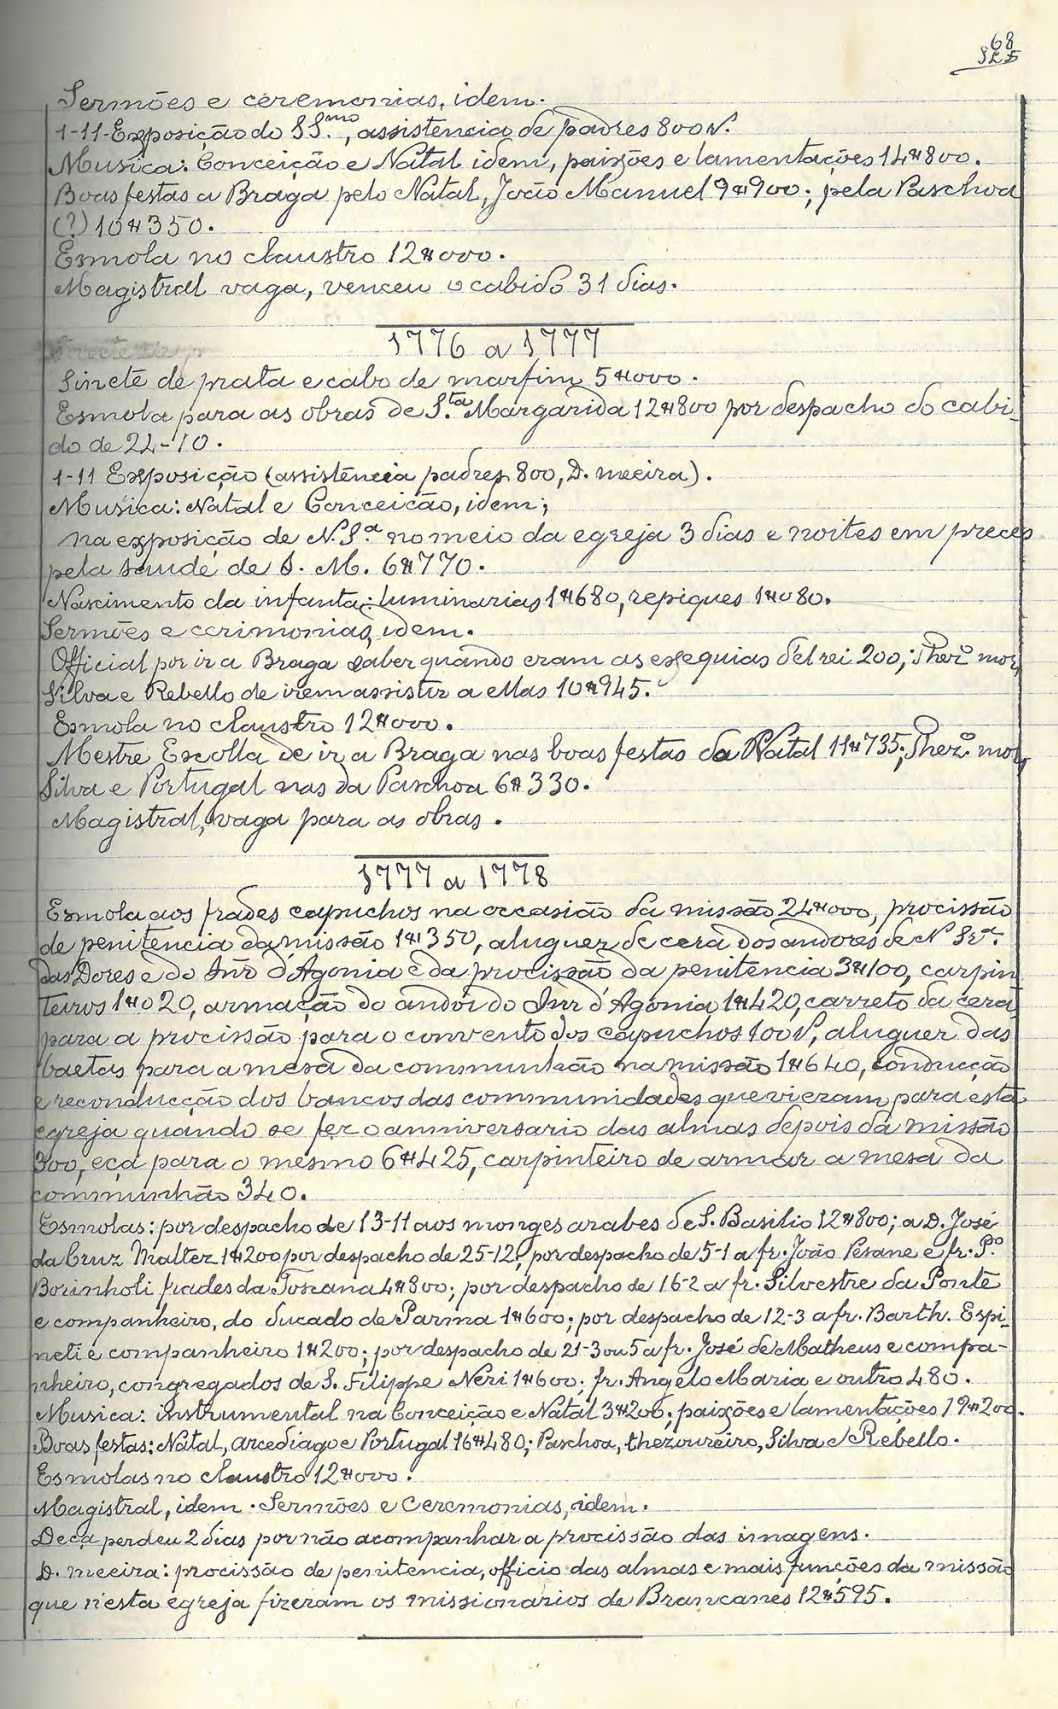 68
Sermões e ceremonias, idem.
1-11-Exposição do SS.mo, assistencia de padres 800 rs.
Musica: Conceição e Natal idem, paixões e lamentações 14$800.
Boas festas a Braga pelo Natal, João Manuel 9$900; pela Paschoa
(?) 10$350.
Esmola no claustro 12$000.
Magistral vaga, venceu o cabido 31 dias.
1776 a 1777
Sinete de prata e cabo de marfim 5$000.
Esmola para as obras de S.ta Margarida 12$800 por despacho do cabi-
do de 22-10.
1-11 Exposição (assistencia padres 800, D. meeira).
Musica: Natal e Conceição, idem;
na exposição de N. S.a no meio da egreja 3 dias e noites em preces
pela saude de S. M. 6$770.
Nascimento da infanta: luminarias 1$680, repiques 1$080.
Sermões e cerimonias, idem.
Official por ir a Braga saber quando eram as exequias del rei 200; Thez.o mor,
Silva e Rebello de irem assistir a ellas 10$945.
Esmola no claustro 12$000.
Mestre Escolla de ir a Braga nas boas festas da Natal 11$735; Thez.o mor,
Silva e Portugal nas da Paschoa 6$330.
Magistral, vaga para as obras.
1777 a 1778
Esmola aos frades capuchos na occasião da missão 24$000, procissão
de penitencia da missão 1$350, aluguer de cera dos andores de N. Sr.a
das Dores e do Snr d'Agonia e da procissão da penitencia 3$100, carpin
teiros 1$020, armação do andor do Snr d'Agonia 1$420, carreto da cera
para a procissão para o convento dos capuchos 100 rs, aluguer das
baetas para a mesa da communhão na missão 1$640, conducção
e reconducção dos bancos das communidades que vieram para esta
egreja quando se fez o anniversario das almas depois da missão
300, eça para o mesmo 6$425, carpinteiro de armar a mesa da
communhão 340.
Esmolas: por despacho de 13-11 aos monges arabes de S. Basilio 12$800; a D. José
da Cruz Maltez 1$200 por despacho de 25-12; por despacho de 5-1 a fr. João Pesane e fr. P.o
Borinholi frades da Toscana 4$800; por despacho de 16-2 a fr. Silvestre da Ponte
e companheiro, do ducado de Parma 1$600; por despacho de 12-3 a fr. Barth. Espi-
neti e companheiro 1$200; por despacho de 21-3 ou 5 a fr. José de Matheus e compa-
nheiro, congregados de S. Filippe Neri 1$600; fr. Angelo Maria e outro 480.
Musica: instrumental na Conceição e Natal 3$206; paixões e lamentações 19$200.
Boas festas: Natal, arcediago e Portugal 16$480; Paschoa, thezoureiro, Silva e Rebello.
Esmolas no claustro 12$000.
Magistral, idem. Sermões e ceremonias, idem.
Deça perdeu 2 dias por não acompanhar a procissão das imagens.
D. meeira: procissão de penitencia, officio das almas e mais funcções da missão
que n'esta egreja fizeram os missionarios de Brancanes 12$595.